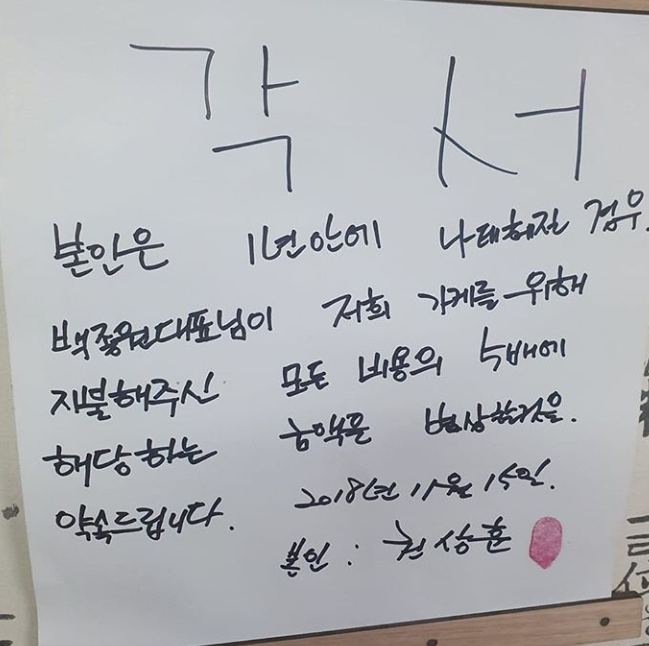 각 서
본인은 1년안에 나태해질 경우.
백종원대표님이 저희 가게를 위해
지불해주신 모든 비용의 5배에
해당하는 금액을 변상할것을.
약속드립니다.
2018년 11월 15일.
본인 : 권상훈